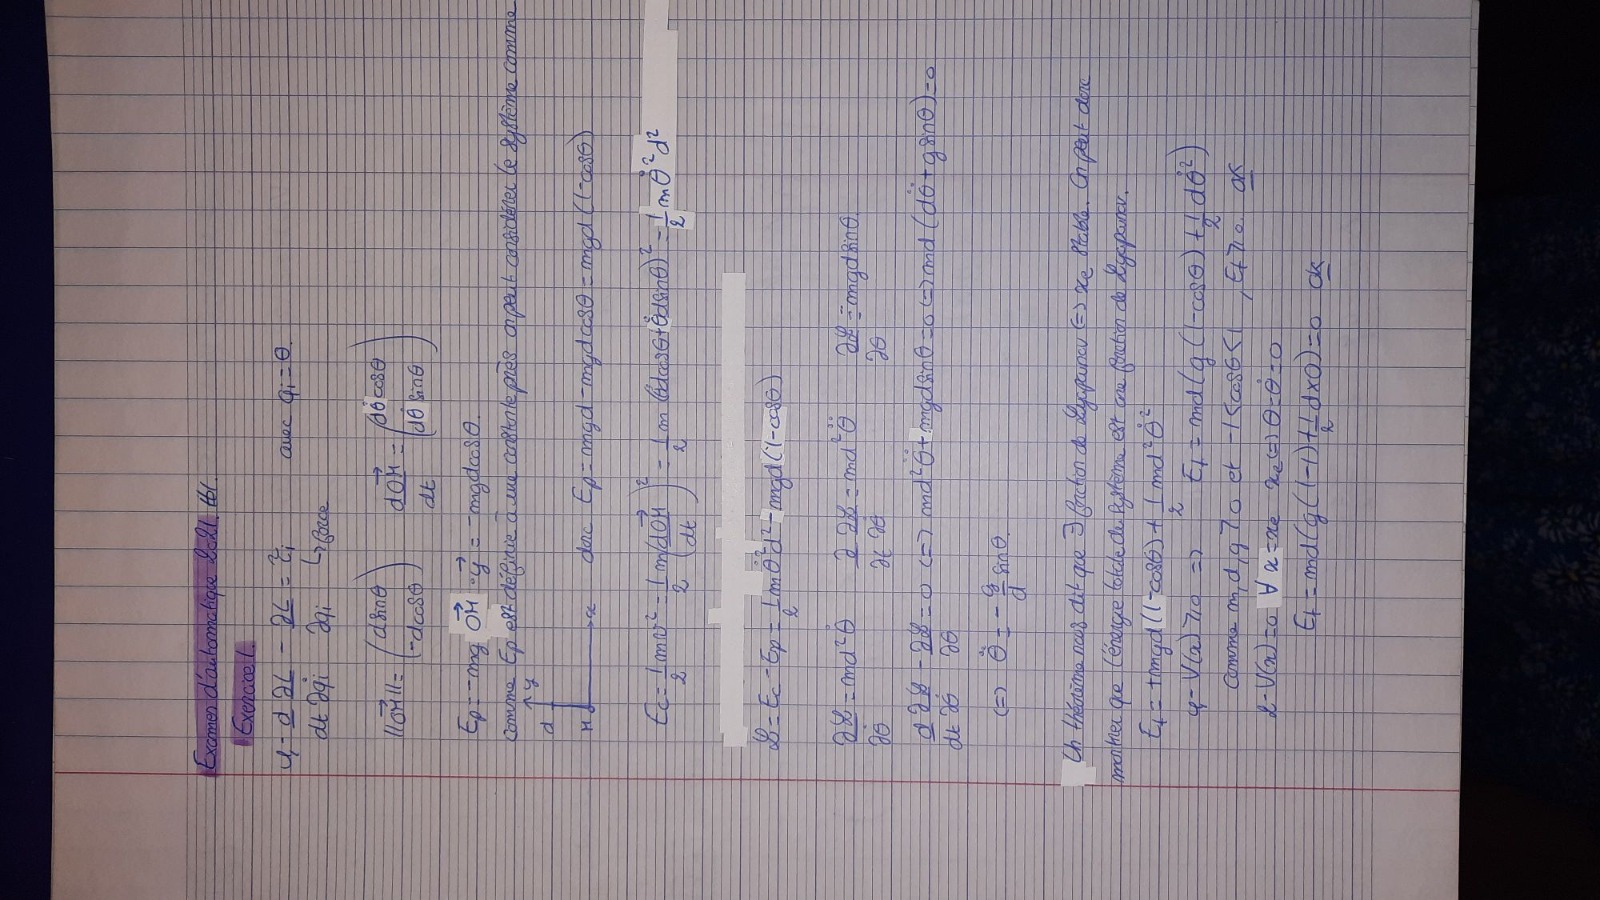 Examen d'automatique 2021.
Exercice 1.
1- d/dt ∂L/∂q̇i - ∂L/∂qi = τi avec qi = θ.
↳ force
||OM|| = (dsinθ / -dcosθ) dOM/dt = (dθ̇cosθ / dθ̇sinθ)
Ep = -mg OM · y = -mgdcosθ.
comme Ep est définie à une constante près on peut considérer le système comme
y
d
M x donc Ep = mgd - mgdcosθ = mgd (1-cosθ)
Ec = 1/2 mv² = 1/2 m(dOM/dt)² = 1/2 m (θ̇dcosθ + θ̇dsinθ)² = 1/2 mθ̇²d²
L = Ec - Ep = 1/2 mθ̇²d² - mgd(1-cosθ)
∂L/∂θ̇ = md²θ̇ ∂/∂t ∂L/∂θ̇ = md²θ̈ ∂L/∂θ = -mgdsinθ.
d/dt ∂L/∂θ̇ - ∂L/∂θ = 0 <=> md²θ̈ + mgdsinθ = 0 <=> md (dθ̈ + gsinθ) = 0
<=> θ̈ = - g/d sinθ.
Un théorème nous dit que ∃ fonction de Lyapunov <=> xe stable. On peut donc
montrer que l'énergie totale du système est une fonction de Lyapunov.
Et = +mgd(1-cosθ) + 1/2 md²θ̇²
1- V(x) ≥ 0 => Et = md(g(1-cosθ) + 1/2 dθ̇²)
Comme m, d, g ≥ 0 et -1<cosθ<1, Et ≥ 0. ok
2- V(x) = 0 ∀ x = xe xe <=> θ = θ̇ = 0
Et = md(g(1-1) + 1/2 d×0) = 0 ok